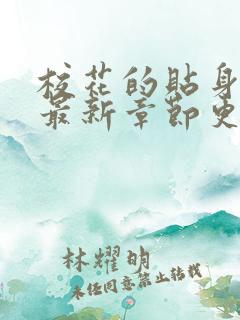 校花的贴身
最新章节史
林耀明
未经同意禁止转载